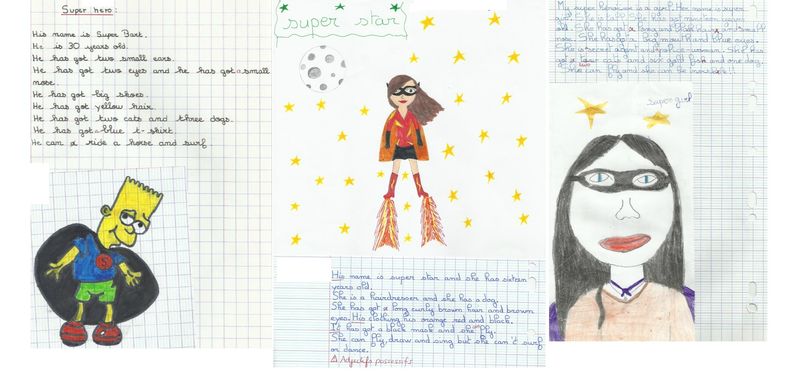 Super hero:
His name is Super Bart.
He is 30 years old.
He has got two small ears.
He has got two eyes and he has got a small
nose.
He has got big shoes.
He has got yellow hair.
He has got two cats and three dogs.
He has got a blue t-shirt.
He can x ride a horse and surf.
super star
His name is super star and she has sixteen
years old.
She is a hairdresser and she has a dog.
She has got x long curly brown hair and brown
eyes. His clothing his orange red and black.
It has got a black mask and she fly.
She can fly, draw and sing but she can't surf
or dance.
Δ Adjectifs possessifs
My super heroine is a girl. Her name is super
girl. She is tall. She has got nineteen years
old. She has got a long and black hair and small
nose. She has got a big mouth and blue eyes.
She is secret agent and police-woman. She has
got two cats and six gold fish and one dog.
She can fly and she can be invisible!!
super girl